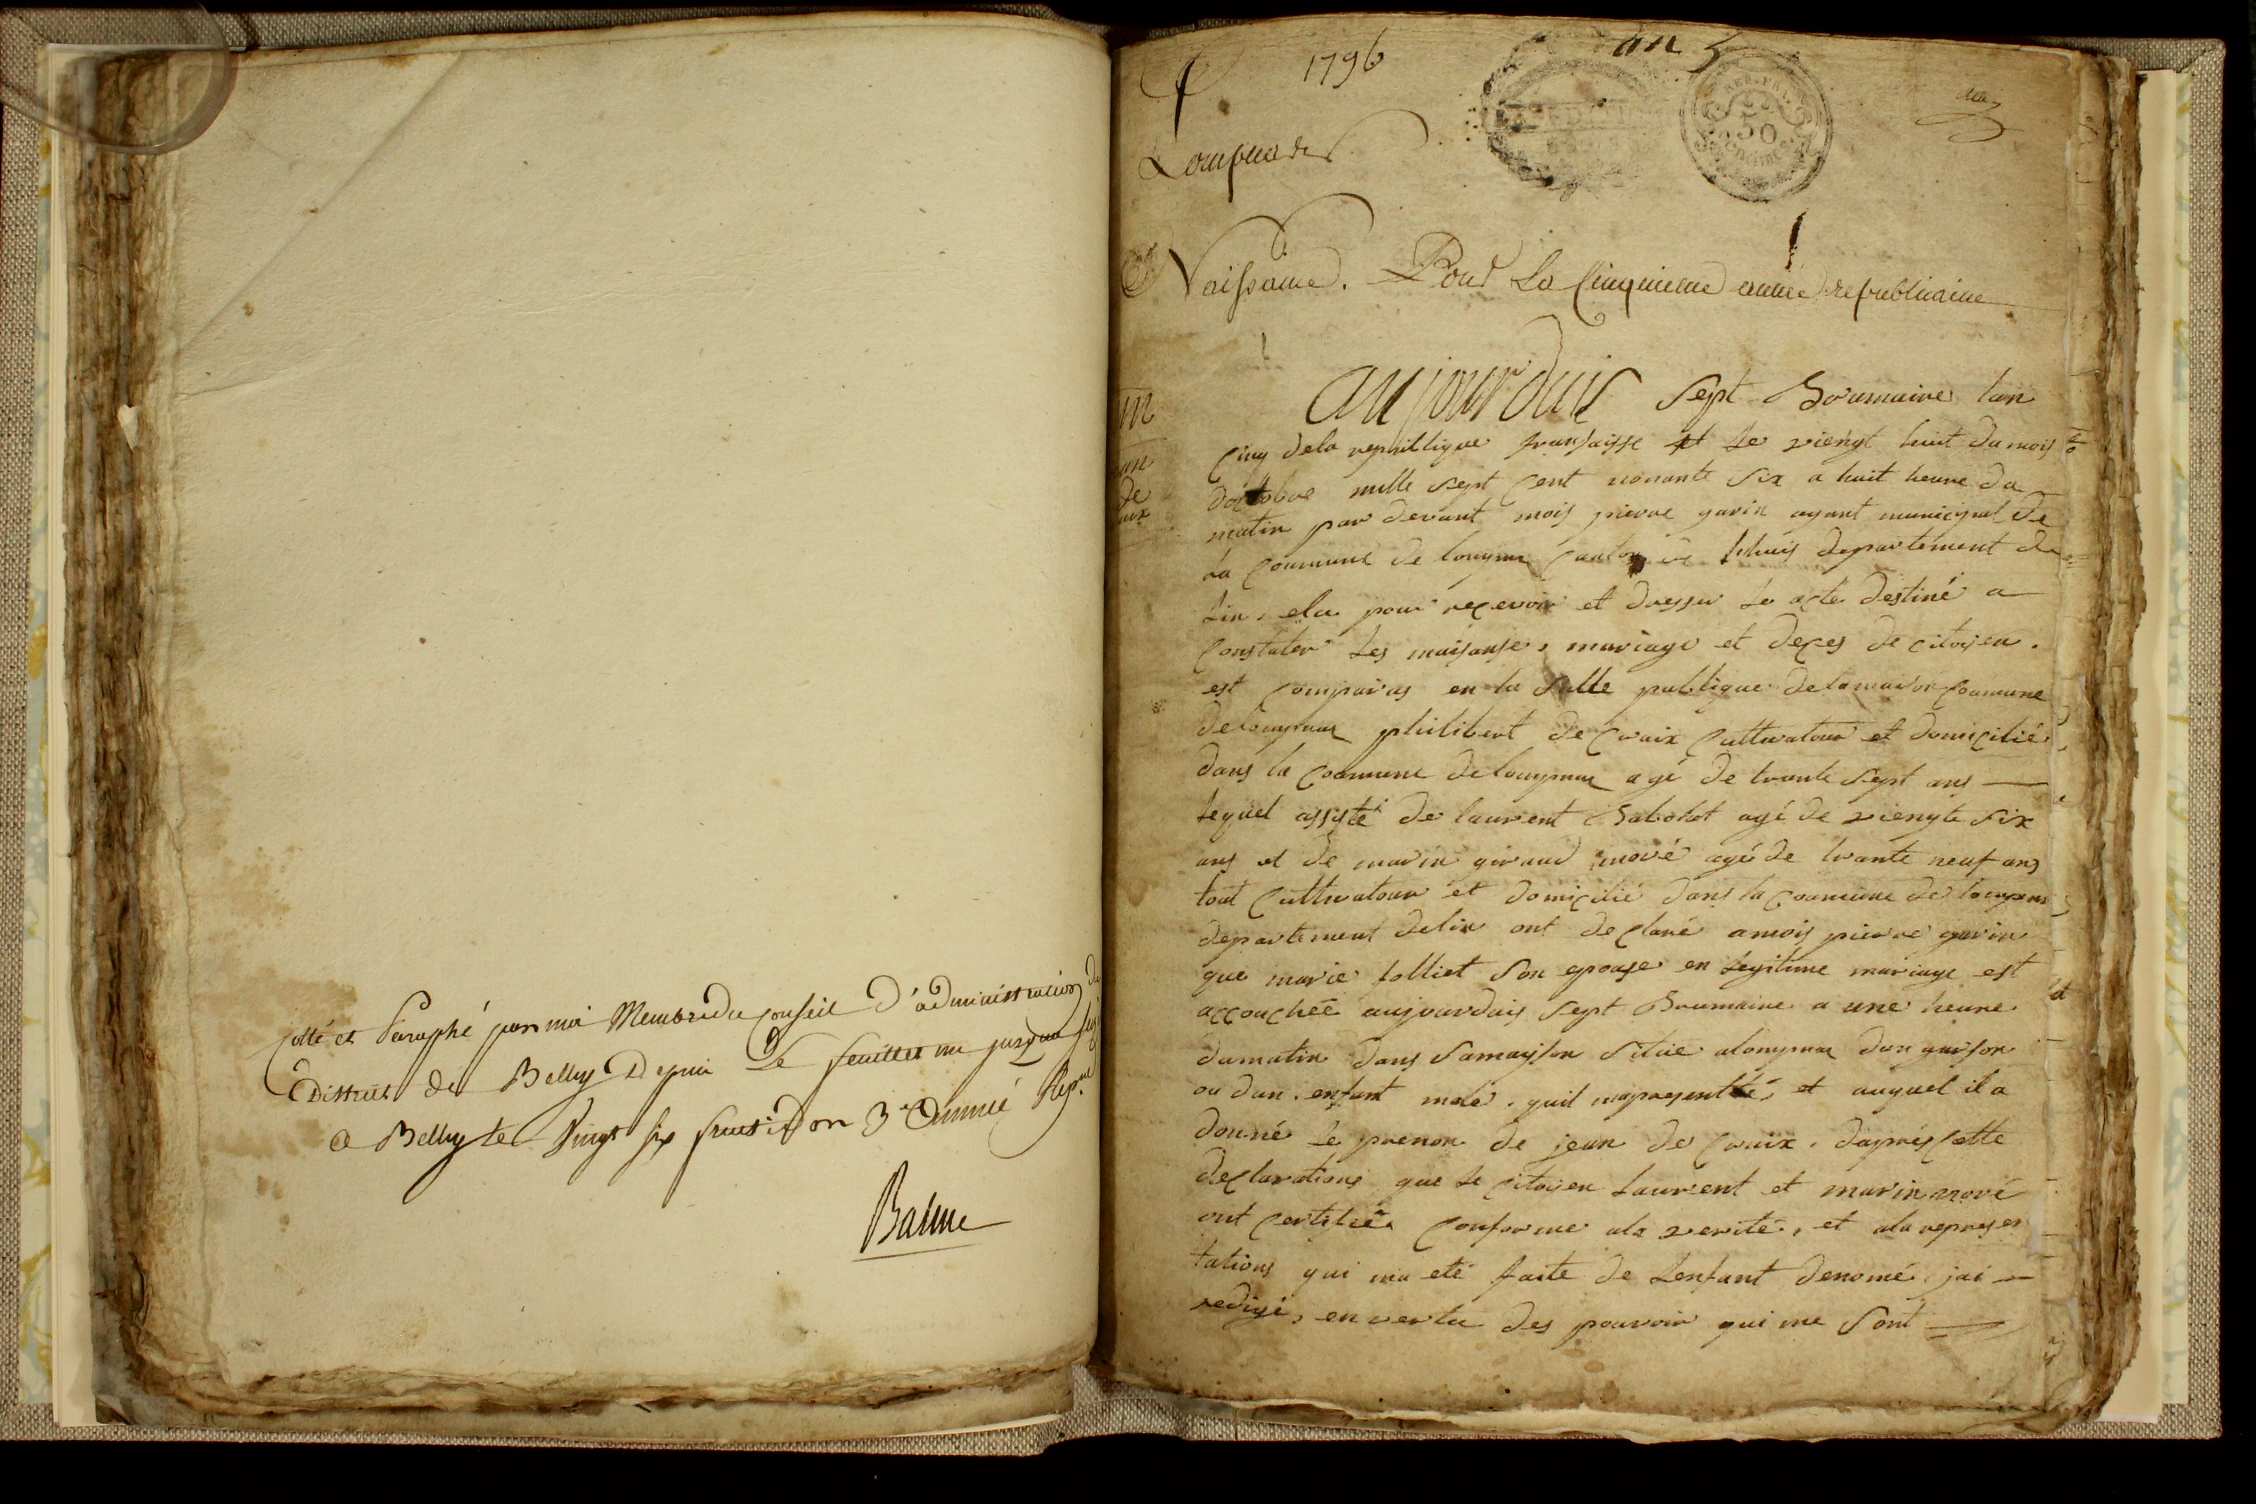 Cotté et Paraphé par moi Membre du Conseil d'administration du
District de Belley Depuis Le feuillet un jusqu'au
a Belley le Vingt six fructidor 3e année Repne
Balme
1796
an 5
REP. FRA.
50
CENTIME
Naissance. Pour La Cinquieme année republicaine
aujourduis sept Brumaire lan
Cinq dela republique fransaisse et le viengt huit du mois
doctobre mille sept Cent nonante six a huit heure du
matin par devant mois pierre garin agant municipal de
La Commune de Canton de lhuis departement de
Lin, elu pour recevoir et dresser le acte destiné a
Constater Les naisanse, mariage et deces de citoyen.
est Comparus en la salle publique de la maison Commune
de philibert de Croix Cultivatour et domicilié
dans la Commune de agé de trante sept ans
lequel assisté de laurent agé de viengte six
ans et de marin giraud moré agé de trante neuf ans
tout Cultivatour et domicilié dans la Commune de
departement de lin ont declaré a mois pierre garin
que marie folliet son epouse en legitime mariage est
accouchée aujourduis sept Brumaire a une heure
du matin dans sa maison situe dun garson
ou dun enfant male, quil mapresentté, et auquel il a
donné le prenon de jean de Croix. dapres Cette
declarations que le citoyen Laurent et marin moré
ont Certifiée Conforme ala verité, et ala represen
tations qui ma eté faite de Lenfant denomé jai
redigé, en vertu des pouvoir qui me sont